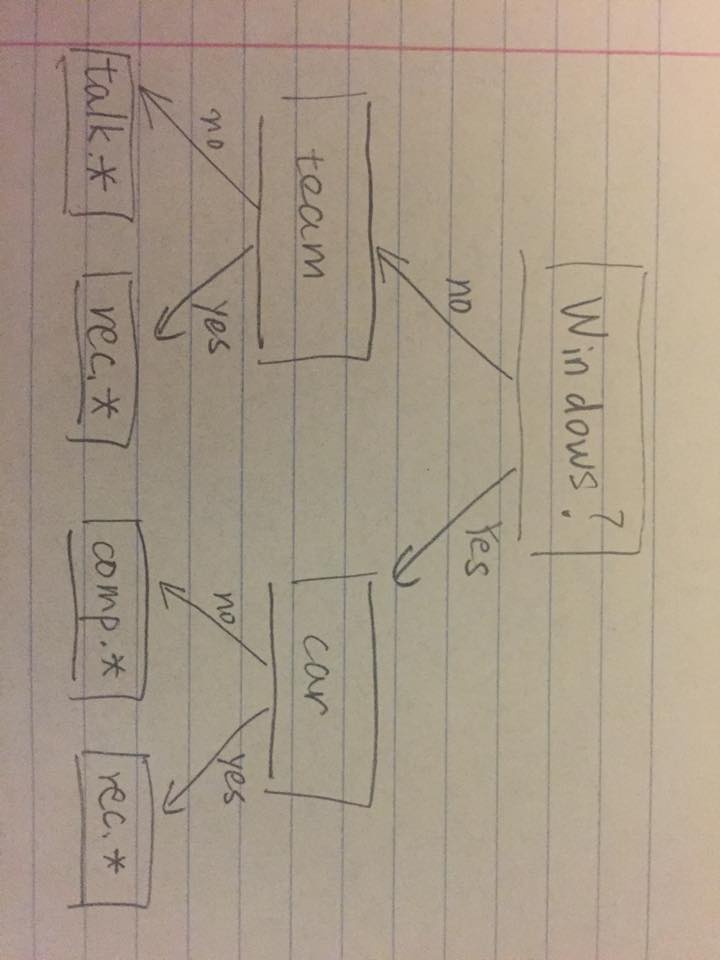 Windows?
no
Yes
team
car
no
yes
no
yes
talk.*
rec.*
comp.*
rec.*